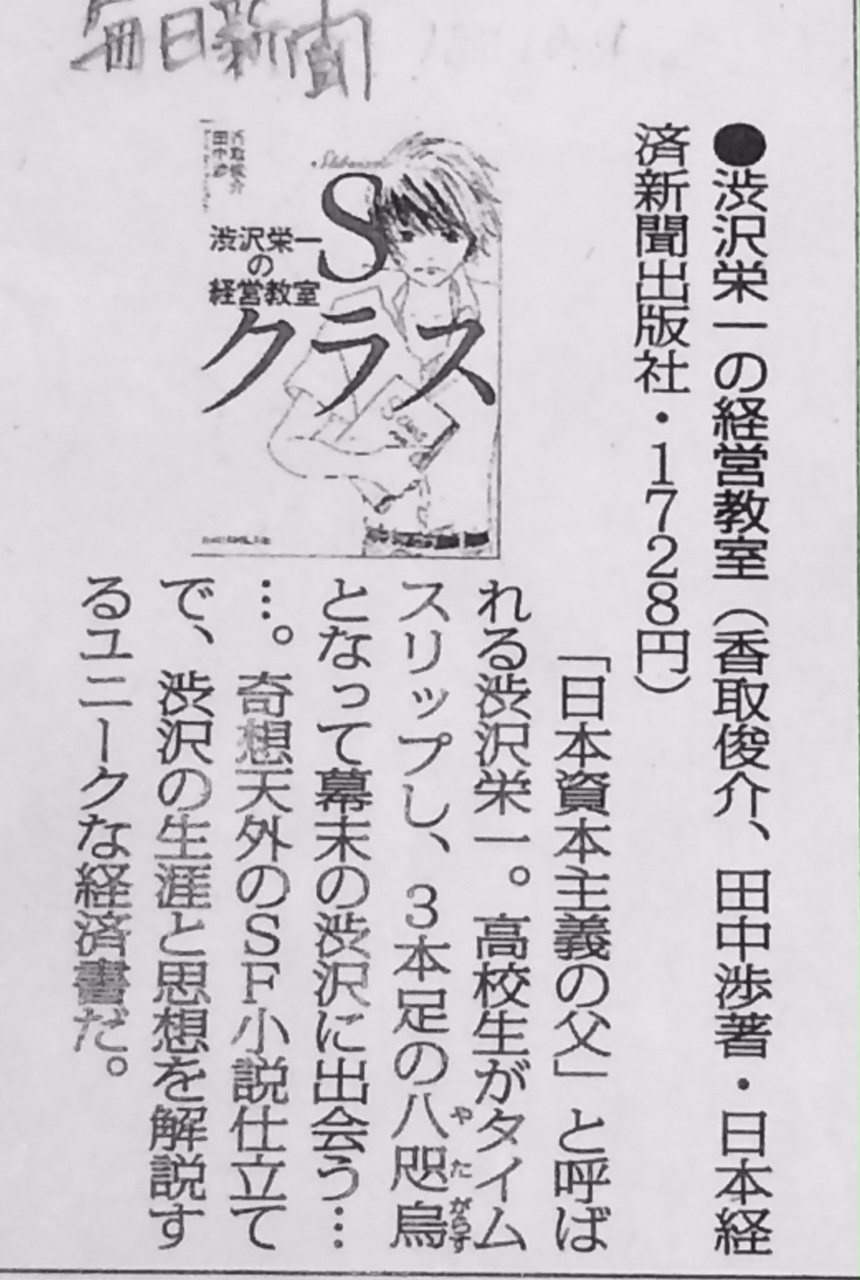 毎日新聞
●渋沢栄一の経営教室（香取俊介、田中渉著・日本経
済新聞出版社・1728円）
香取俊介
田中渉
S
渋沢栄一
の
経営教室
クラス
「日本資本主義の父」と呼ば
れる渋沢栄一。高校生がタイム
スリップし、3本足の八咫烏
やたがらす
となって幕末の渋沢に出会う…
…。奇想天外のSF小説仕立て
で、渋沢の生涯と思想を解説す
るユニークな経済書だ。